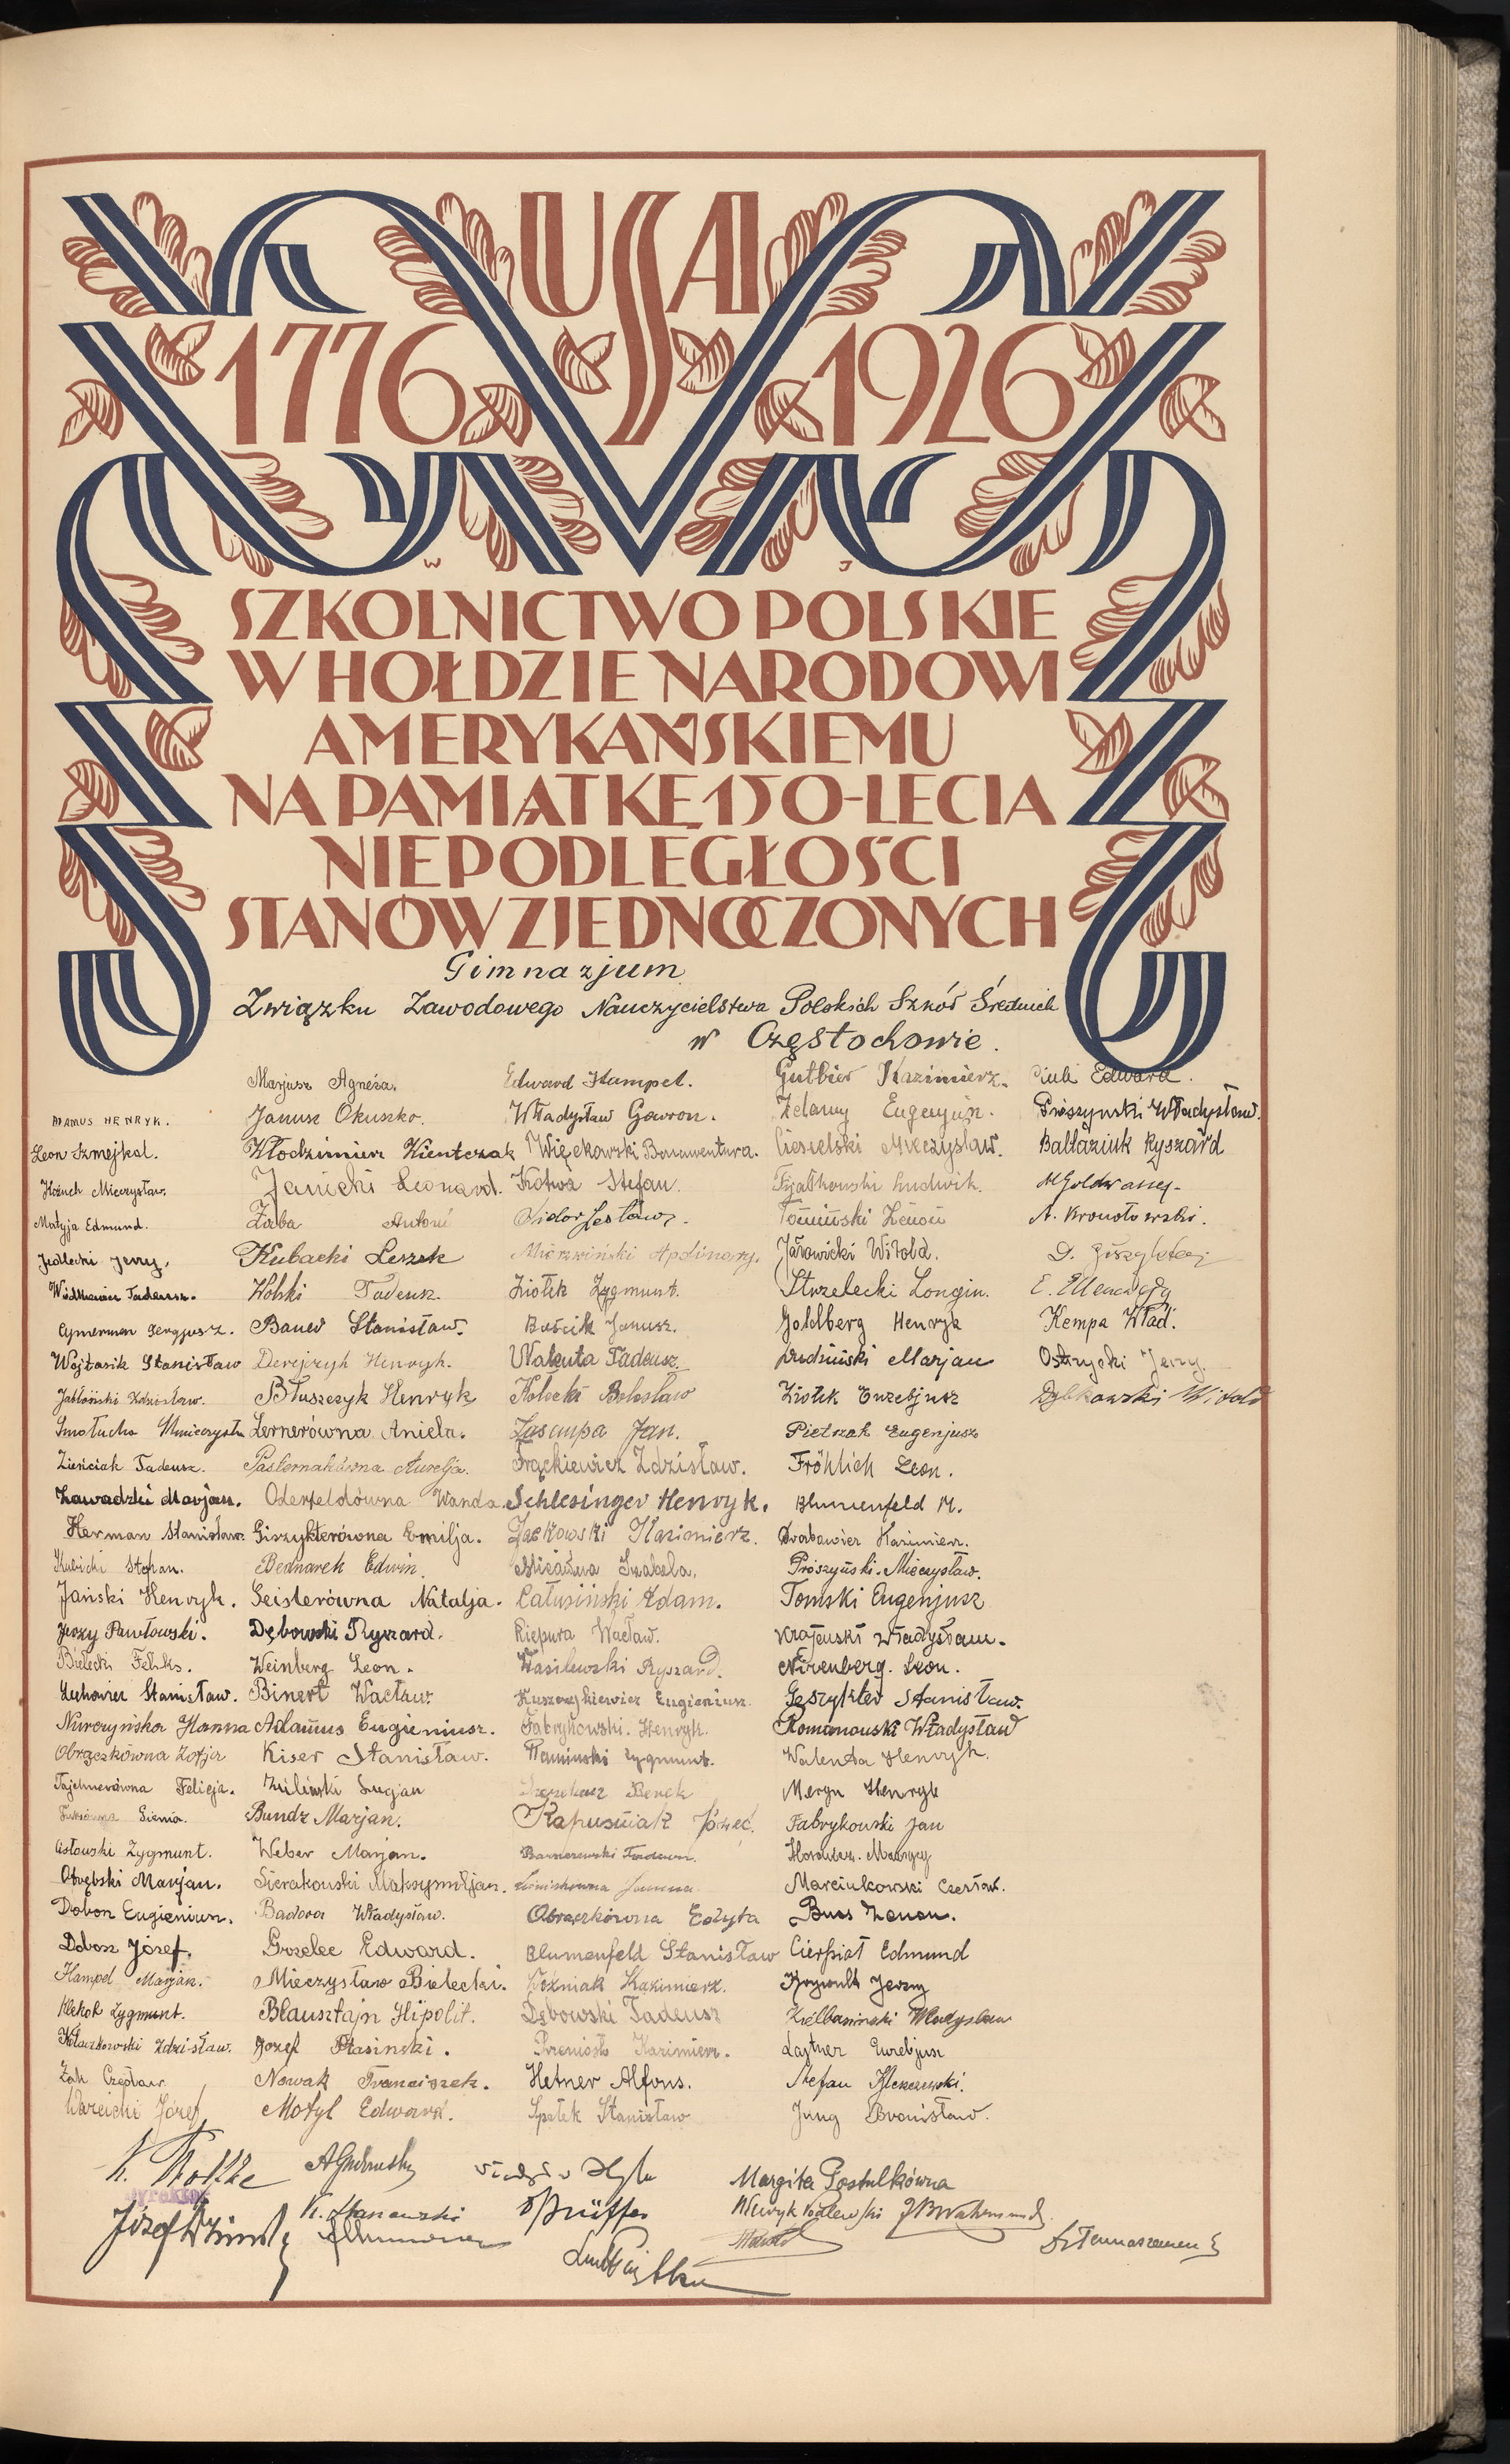 USA
1776 1926
W J
SZKOLNICTWO POLSKIE
W HOŁDZIE NARODOWI
AMERYKAŃSKIEMU
NA PAMIĄTKĘ 150-LECIA
NIEPODLEGŁOŚCI
STANÓW ZJEDNOCZONYCH
Gimnazjum
Związku Zawodowego Nauczycielstwa Polskich Szkół Średnich
w Częstochowie.
ADAMUS HENRYK.
Leon Szmejkal.
Kożuch Mieczysław.
Matyja Edmund.
Jedlecki Jerzy.
Tadeusz.
Cymerman Sergjusz.
Wojtasik Stanisław
Jabłoński Zdzisław.
Smotucha
Zieńciak Tadeusz.
Zawadzki Marjan.
Herman Stanisław.
Kubicki Stefan.
Jański Henryk.
Jerzy Pawłowski.
Bielecki Feliks.
Stanisław.
Nurczyńska Hanna
Obrączkówna Zofja
Tajchnerówna Felicja.
Sienia.
Zygmunt.
Obrębski Marjan.
Dobon Eugieniusz.
Dobosz Józef.
Hampel Marjan.
Klekot Zygmunt.
Zdzisław.
Żak Czesław
Warcicki Józef
Marjusz Agneża.
Janusz Okuszko.
Włodzimierz Kientczak
Janicki Leonard.
Żaba Antoni
Kubacki Leszek
Wolski Tadeusz.
Bauer Stanisław.
Derejczyk Henryk.
Błuszczyk Henryk
Lernerówna Aniela.
Pasternakówna Aurelja.
Oderfeldówna Wanda.
Giszykterówna Emilja.
Bednarek Edwin.
Geislerówna Natalja.
Dębowski Ryszard.
Weinberg Leon.
Binert Wacław.
Adamus Eugieniusz.
Kiser Stanisław.
Lucjan
Bundz Marjan.
Weber Marjan.
Sierakowski Maksymiljan.
Badora Władysław.
Grzelec Edward.
Mieczysław Bielecki.
Blausztajn Hipolit.
Józef Ptasinski.
Nowak Franciszek.
Motyl Edward.
Edward Hampel.
Władysław Gawron.
Więckowski Bonawentura.
Kotwa Stefan.
Mierzwiński Apolinary.
Ziołek Zygmunt.
Bańcik Janusz.
Walenta Tadeusz.
Kołecki Bolesław
Zasempa Jan.
Frąckiewicz Zdzisław.
Schlesinger Henryk.
Jackowski Kazimierz.
Izabela.
Całusiński Adam.
Kiepura Wacław.
Wasilewski Ryszard.
Kuszczykiewicz Eugieniusz.
Fabrykowski Henryk.
Kamiński Zygmunt.
Kapuśniak Józef.
Tadeusz.
Janina
Obrączkówna Edyta
Blumenfeld Stanisław
Woźniak Kazimierz.
Dębowski Tadeusz
Kazimierz.
Hetner Alfons.
Spałek Stanisław
Gutbier Kazimierz.
Zelamy Eugenjusz.
Ciesielski Mieczysław.
Fijałkowski Ludwik.
Tomiński Zenon
Jarowicki Witold.
Strzelecki Longin.
Goldberg Henryk
Marjan
Ziołek Euzebjusz
Pietrzak Eugenjusz
Fröhlich Leon.
Blumenfeld M.
Grabowier Kazimierz.
Prószyński Mieczysław.
Tomski Eugenjusz
Krajewski Władysław.
Nirenberg Leon.
Geszykter Stanisław.
Romanowski Władysław
Walenta Henryk.
Meryn Henryk
Fabrykowski Jan
Maurycy
Marciukowski Czesław.
Buss Zenon.
Cierpiał Edmund
Jerzy
Kiełbasiński Władysław
Lajtner Euzebjusz
Stefan Kleszczewski.
Jung Bronisław.
Ciuk Edward.
Prószynski Władysław.
Baltaziuk Ryszard
M Goldwasser
A. Kronołowski.
Kempa Wład.
Ostrycki Jerzy.
Dybkowski Witold
Margita Postulkówna
Dyrektor